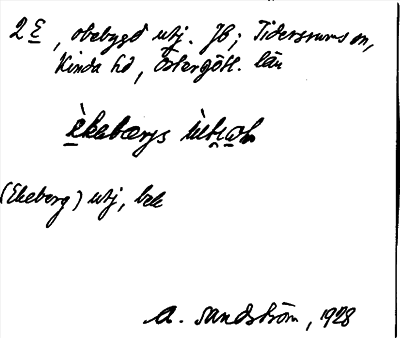 2 E, obebygd utj. JB; Tidersrums sn,
Kinda hd, Östergötl. län
èkabærjs
(Ekeberg) utj, bek
A. Sandström, 1928